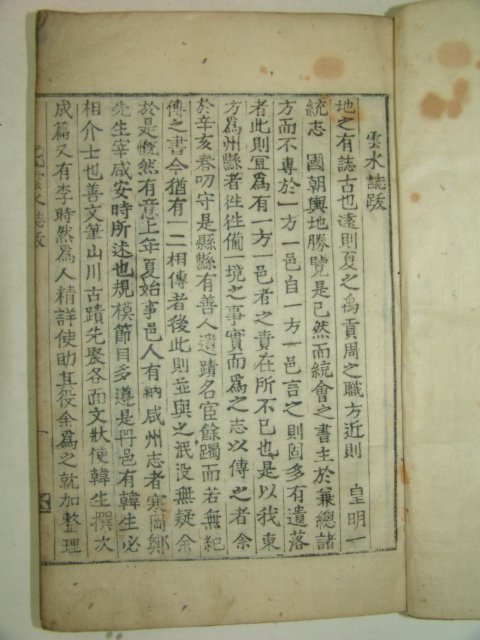 雲水誌跋
地之有誌古也遠則夏之禹貢周之職方近則 皇明一
統志 國朝輿地勝覽是已然而統會之書主於兼總諸
方而不專於一方一邑自一方一邑言之則固多有遺落
者此則宜爲有一方一邑者之責在所不已也是以我東
方爲州縣者徃徃備一境之事實而爲之志以傳之者余
於辛亥春叨守是縣縣有善人遺蹟名宦餘躅而若無紀
傳之書今猶有一二相傳者後此則並與之泯没無疑余
於是慨然有意上年夏始事邑人有納咸州志者寒岡鄭
先生宰咸安時所述也規模節目多遵是丹邑有韓生必
相介士也善文筆山川古蹟先聚各面文状使韓生撰次
成篇又有李時然爲人精詳使助其役余爲之就加整理
雲水誌跋